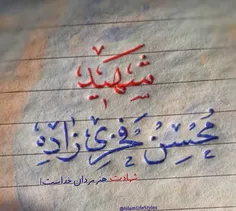 شَهِید
مُحسِن فَخری زاده
شهادت هنر مردان خداست!
@IslamLifeStyles